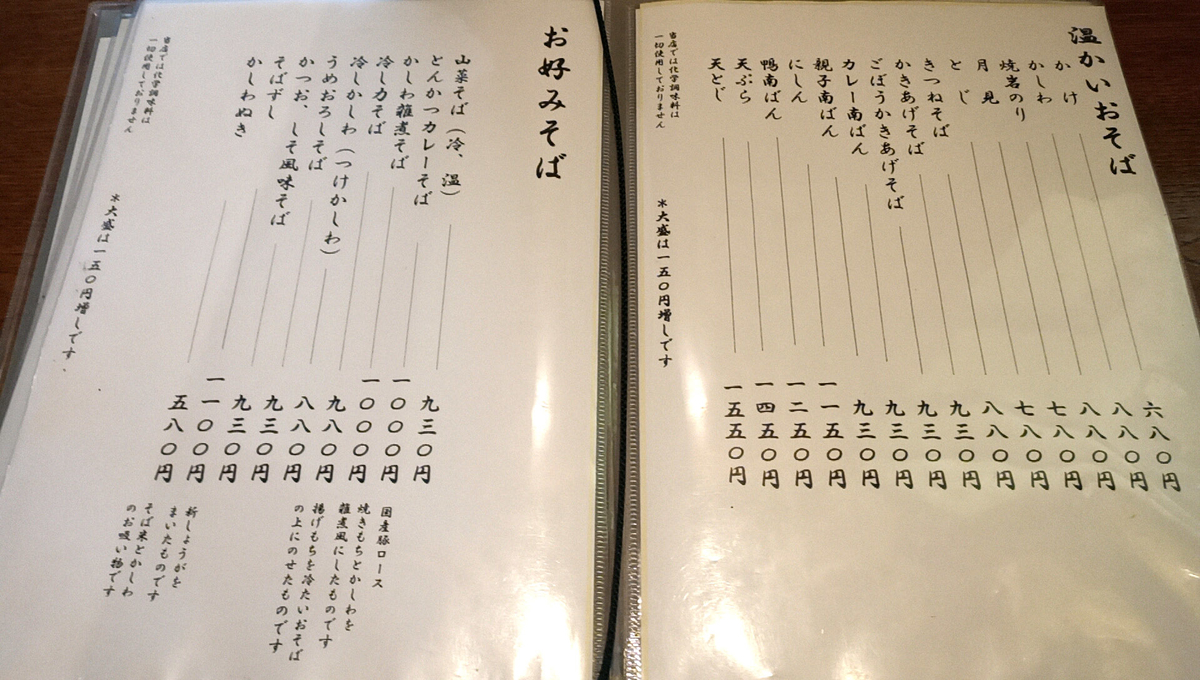 温かいおそば
かけ 六八〇円
かしわ 八八〇円
焼岩のり 八八〇円
月見 七八〇円
とじ 七八〇円
きつねそば 八八〇円
かきあげそば 九三〇円
ごぼうかきあげそば 九三〇円
カレー南ばん 九三〇円
親子南ばん 九三〇円
にしん 一一五〇円
鴨南ばん 一二五〇円
天ぷら 一四五〇円
天とじ 一五五〇円
当店では化学調味料は
一切使用しておりません
＊大盛は一五〇円増しです
お好みそば
山菜そば（冷、温） 九三〇円
とんかつカレーそば 一〇〇〇円 国産豚ロース
かしわ雑煮そば 一〇〇〇円 焼きもちとかしわを
雑煮風にしたものです
冷し力そば 九八〇円 揚げもちを冷たいおそば
の上にのせたものです
冷しかしわ（つけかしわ） 八八〇円
うめおろしそば 九三〇円
かつお、しそ風味そば 九三〇円
そばずし 一一〇〇円 新しょうがを
まいたものです
かしわぬき 五八〇円 そば米とかしわ
のお吸い物です
当店では化学調味料は
一切使用しておりません
＊大盛は一五〇円増しです